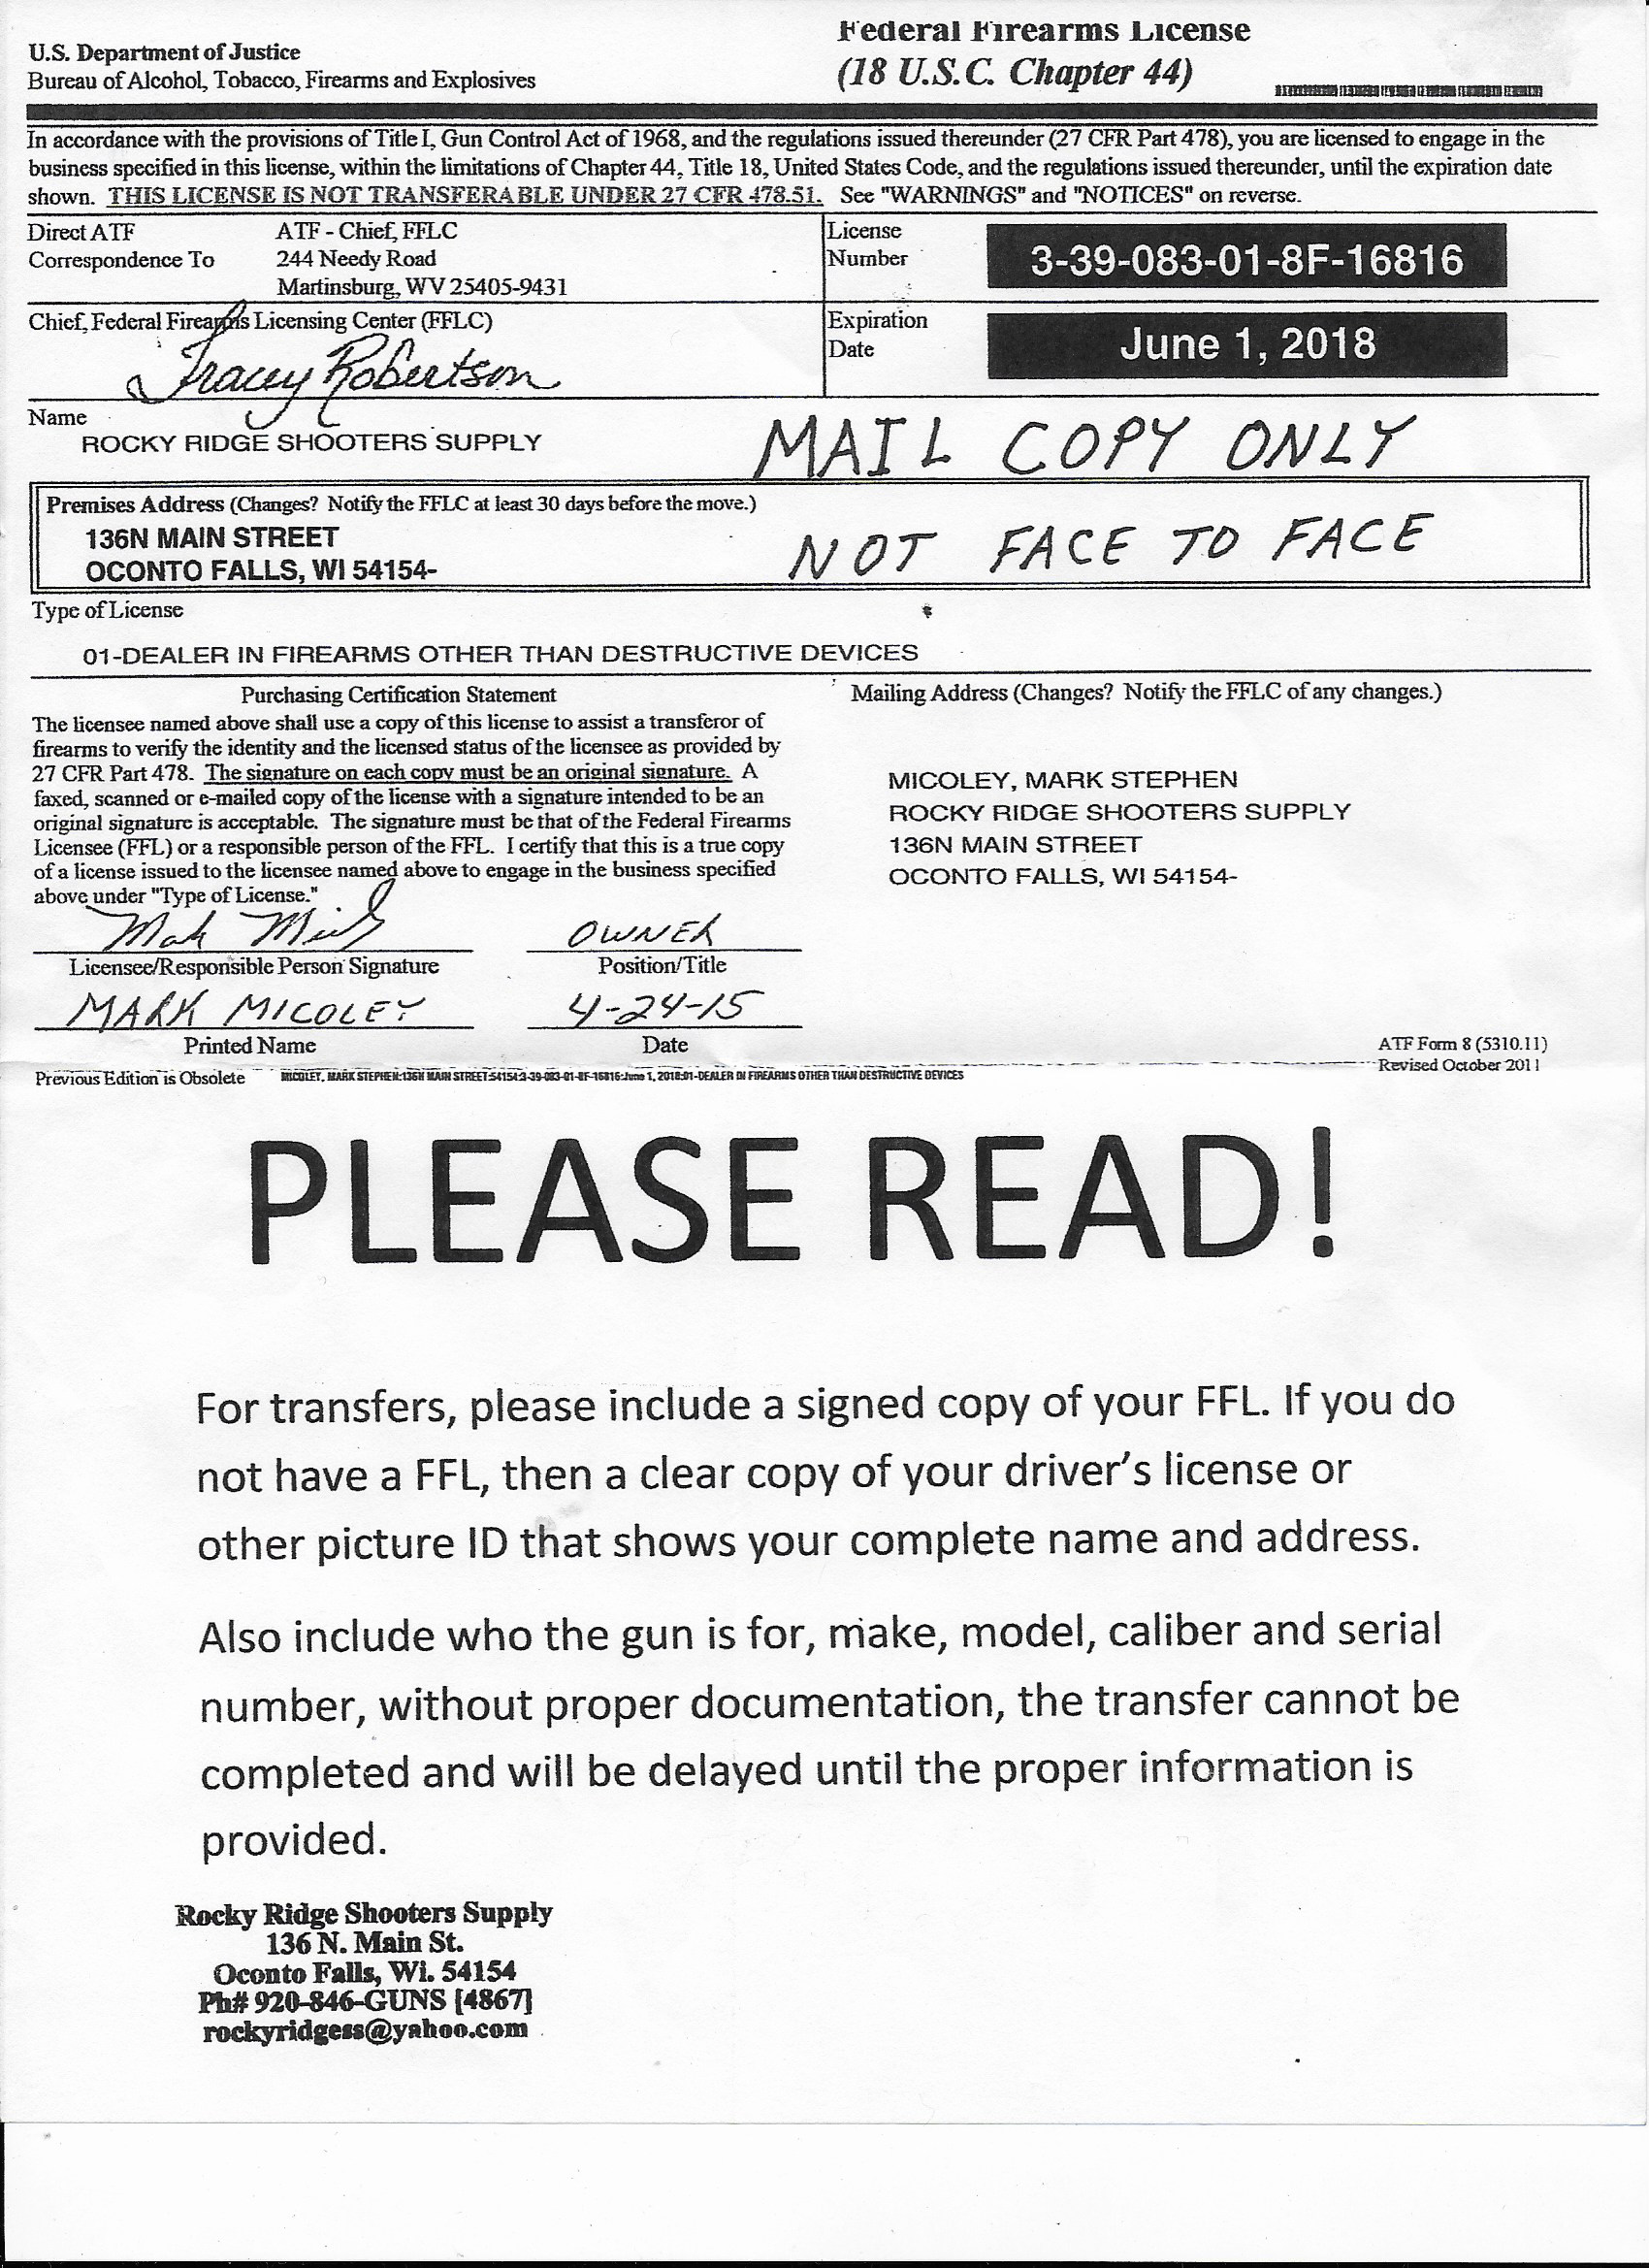 Federal Firearms License
U.S. Department of Justice
(18 U.S.C. Chapter 44)
Bureau of Alcohol, Tobacco, Firearms and Explosives
In accordance with the provisions of Title I, Gun Control Act of 1968, and the regulations issued thereunder (27 CFR Part 478), you are licensed to engage in the
business specified in this license, within the limitations of Chapter 44, Title 18, United States Code, and the regulations issued thereunder, until the expiration date
shown. THIS LICENSE IS NOT TRANSFERABLE UNDER 27 CFR 478.51. See "WARNINGS" and "NOTICES" on reverse.
Direct ATF
Correspondence To
ATF - Chief, FFLC
244 Needy Road
Martinsburg, WV 25405-9431
License
Number
3-39-083-01-8F-16816
Chief, Federal Firearms Licensing Center (FFLC)
Tracey Robertson
Expiration
Date
June 1, 2018
Name
ROCKY RIDGE SHOOTERS SUPPLY
MAIL COPY ONLY
Premises Address (Changes? Notify the FFLC at least 30 days before the move.)
136N MAIN STREET
OCONTO FALLS, WI 54154-
NOT FACE TO FACE
Type of License
01-DEALER IN FIREARMS OTHER THAN DESTRUCTIVE DEVICES
Purchasing Certification Statement
The licensee named above shall use a copy of this license to assist a transferor of
firearms to verify the identity and the licensed status of the licensee as provided by
27 CFR Part 478. The signature on each copy must be an original signature. A
faxed, scanned or e-mailed copy of the license with a signature intended to be an
original signature is acceptable. The signature must be that of the Federal Firearms
Licensee (FFL) or a responsible person of the FFL. I certify that this is a true copy
of a license issued to the licensee named above to engage in the business specified
above under "Type of License."
Mailing Address (Changes? Notify the FFLC of any changes.)
MICOLEY, MARK STEPHEN
ROCKY RIDGE SHOOTERS SUPPLY
136N MAIN STREET
OCONTO FALLS, WI 54154-
OWNER
Licensee/Responsible Person Signature
Position/Title
MARK MICOLEY
4-24-15
Printed Name
Date
ATF Form 8 (5310.11)
Revised October 2011
Previous Edition is Obsolete
MICOLEY, MARK STEPHEN:136N MAIN STREET:54154:3-39-083-01-8F-16816:June 1, 2018:01-DEALER IN FIREARMS OTHER THAN DESTRUCTIVE DEVICES
PLEASE READ!
For transfers, please include a signed copy of your FFL. If you do
not have a FFL, then a clear copy of your driver's license or
other picture ID that shows your complete name and address.
Also include who the gun is for, make, model, caliber and serial
number, without proper documentation, the transfer cannot be
completed and will be delayed until the proper information is
provided.
Rocky Ridge Shooters Supply
136 N. Main St.
Oconto Falls, Wi. 54154
Ph# 920-846-GUNS [4867]
rockyridgess@yahoo.com